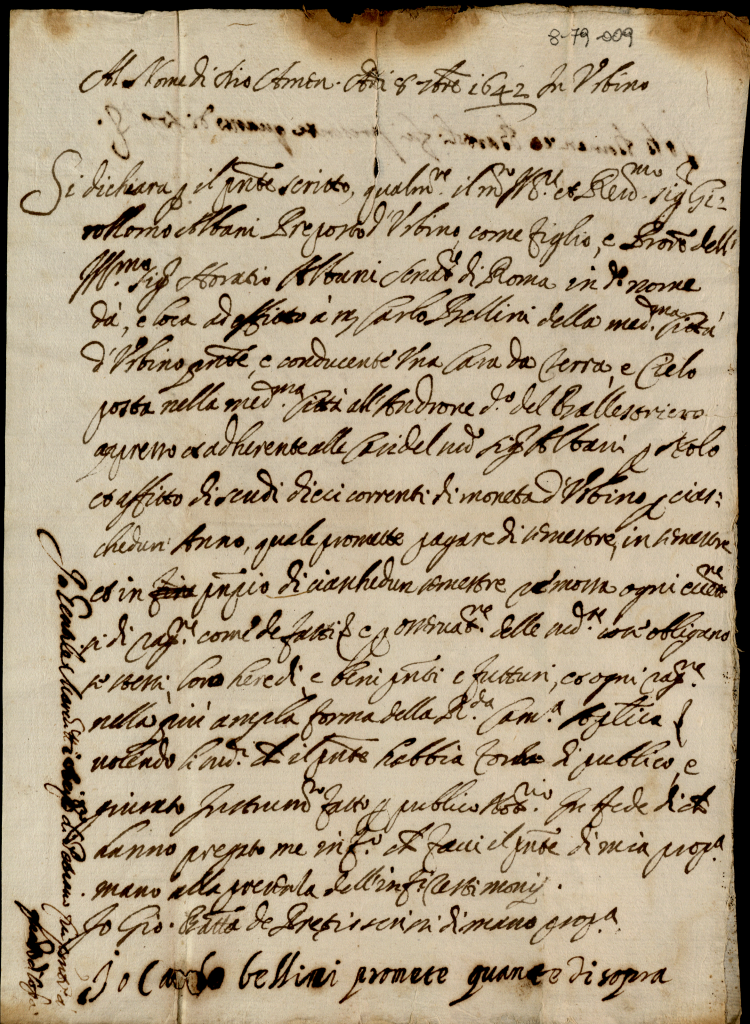 8-79-009
Al Nome di Dio Amen. Adi 8 7bre 1642 In Urbino
Si dichiara p il pnte scritto, qualmte il mo Illre et Revdmo sigr Gi-
rolomo Albani Preposto d'Urbino, come figlio, e Procre dell'
Illmo sigr Horatio Albani Senatre di Roma in do nome
dà, e loca ad affitto à mr Carlo Bellini della medma Città
d'Urbino pnte, e conducente una Casa da Terra, e Cielo
posta nella medma Città all'Androne do del Ballestriero
appresso et adherente alle Case del md sigr Albani p
et affitto di scudi dieci correnti di moneta d'Urbino p cias-
chedun Anno, quale promette pagare di semestre, in semestre
et in pnpio di ciaschedun semestre rimossa ogni eccett
ne di ragne come de fatti e p osservatne delle md cose obligano
se stessi, loro heredi, e beni pnti e futturi, et ogni ragne
nella più ampla forma della Rda Cama Apostlica
volendo li md ch il pnte habbia forza di publico, e
giurato Instrumto fatto p publico Notrio In fede di ch
hanno pregato me infto ch facci il pnte di mia propa
mano alla presenza dell'infti Testimonij.
Io Gio. Batta de scrissi di mano propa
Io Carlo bellini promete quante di sopra
Io